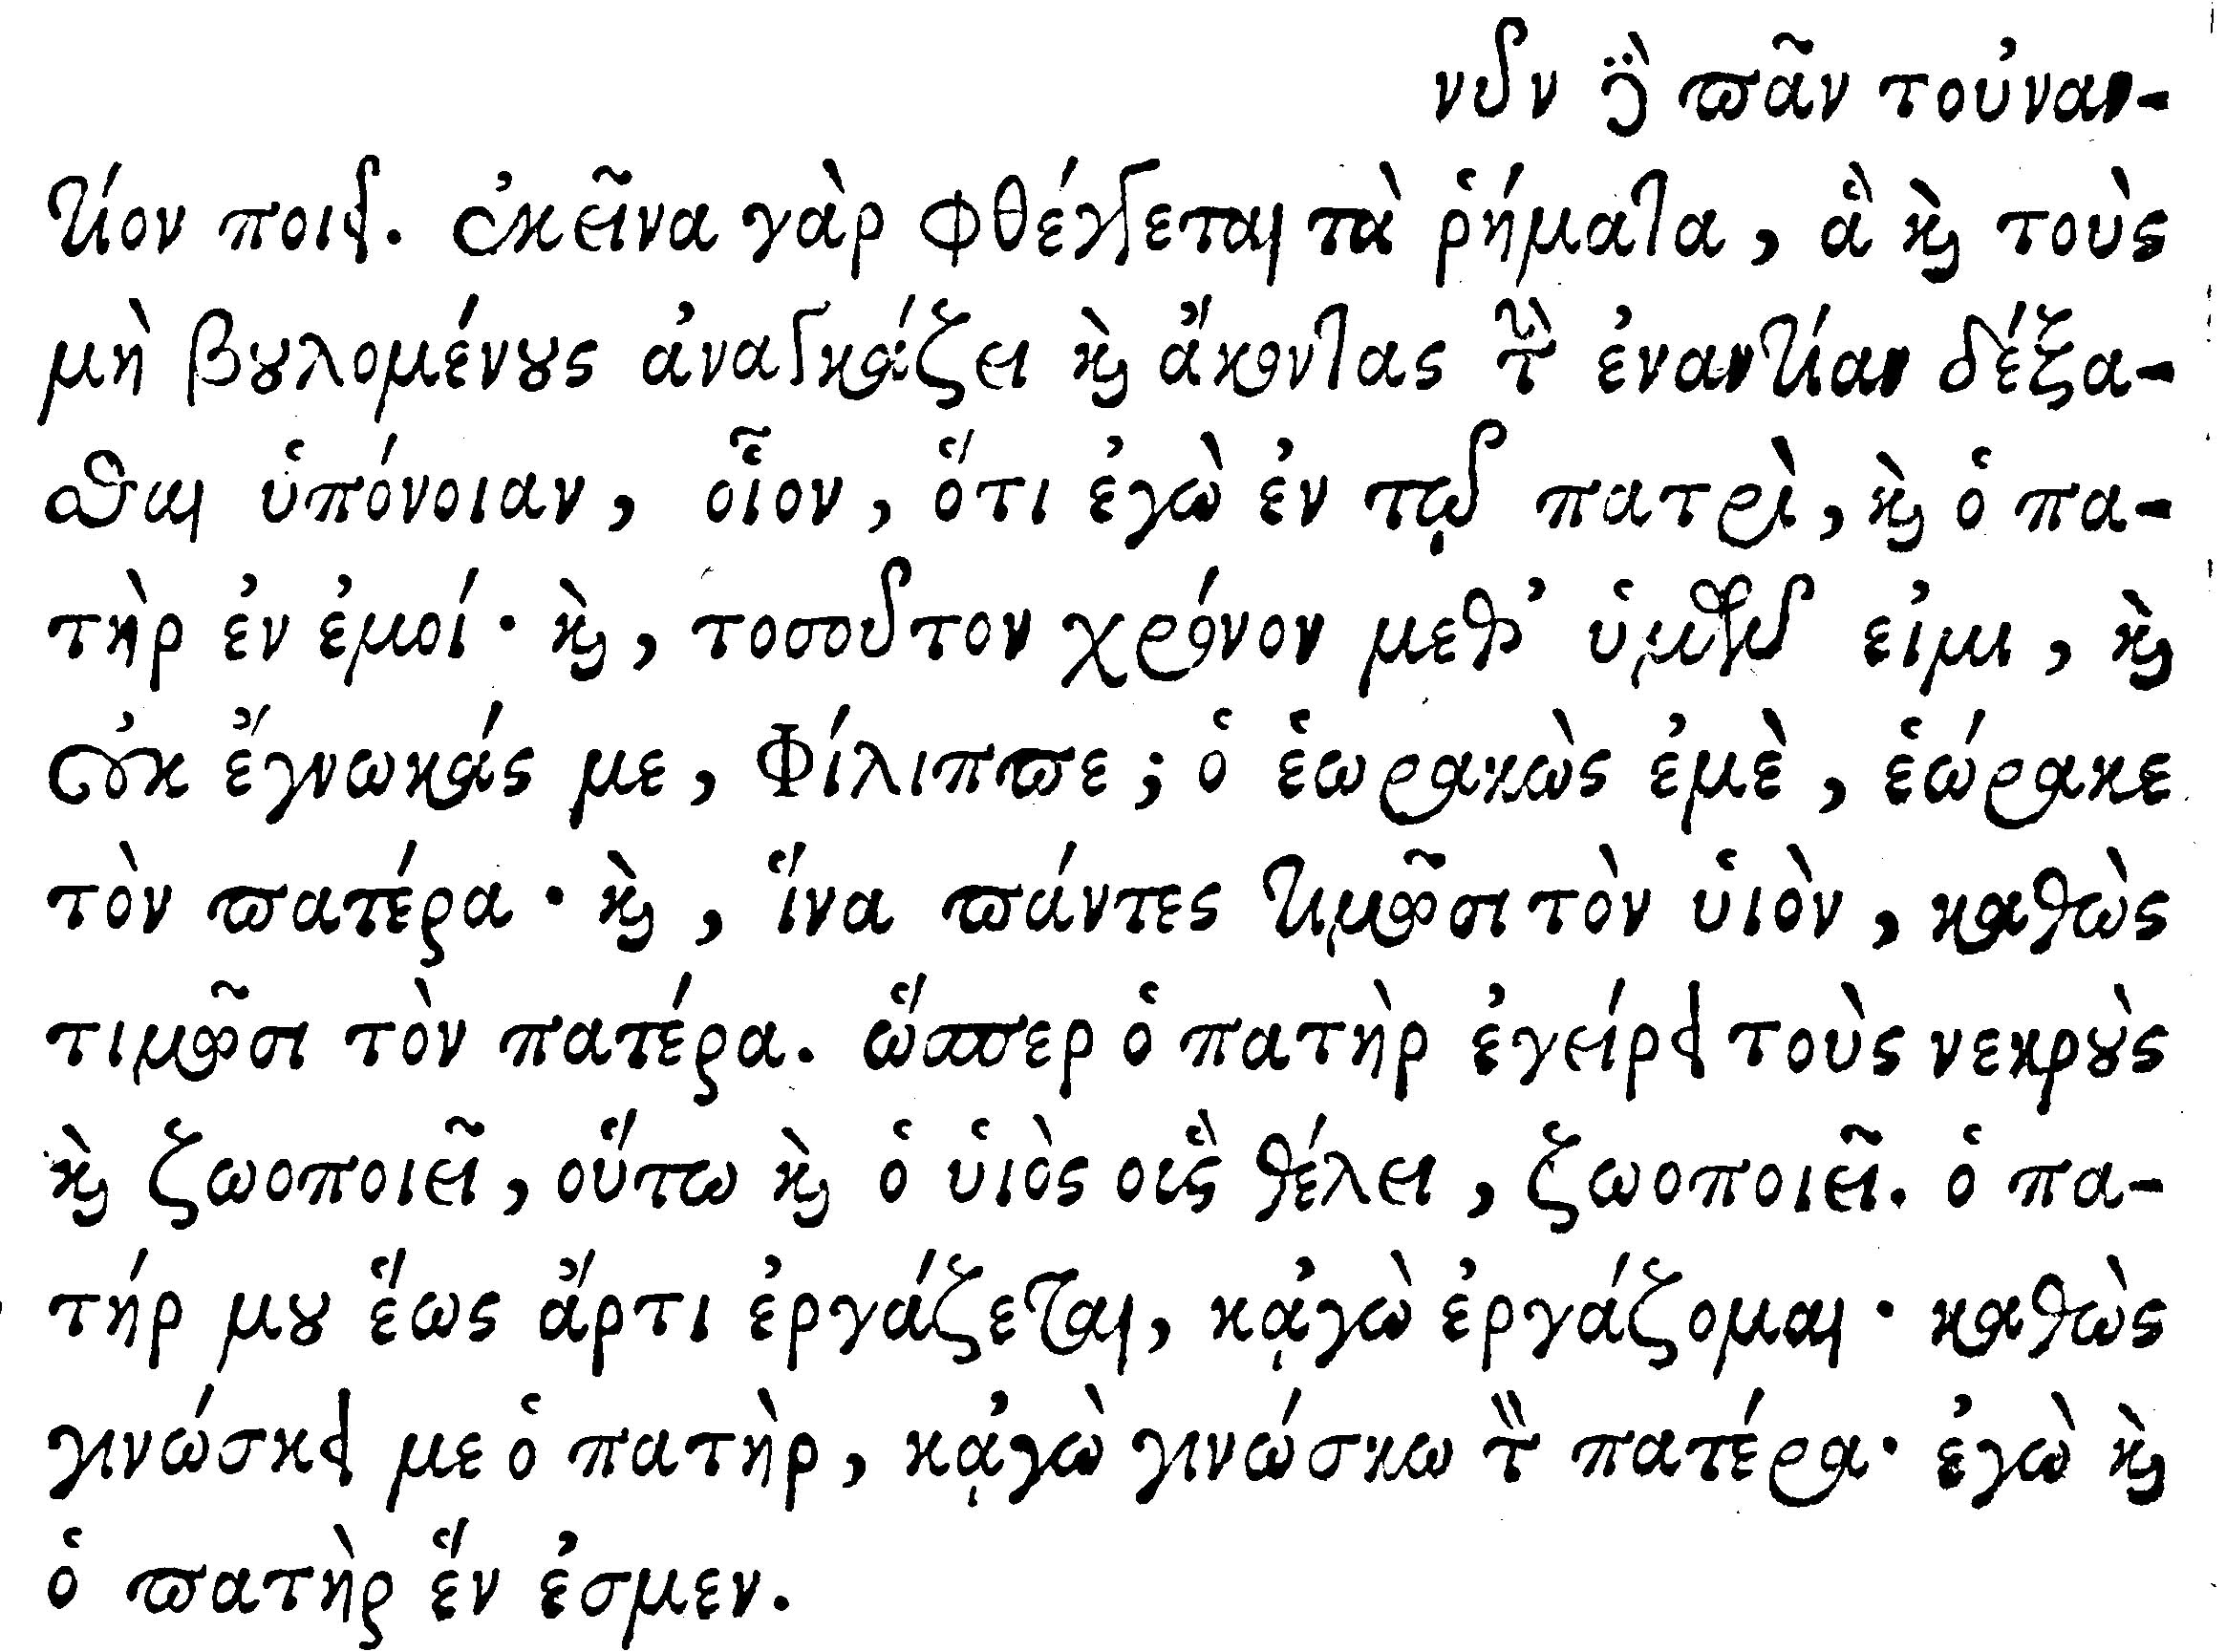 νῦν δὲ πᾶν τοὐναν-
τίον ποιεῖ. ἐκεῖνα γὰρ φθέγγεται τὰ ῥήματα, ἃ καὶ τοὺς
μὴ βουλομένους ἀναγκάζει καὶ ἄκοντας τὴν ἐναντίαν δέξα-
σθαι ὑπόνοιαν, οἷον, ὅτι ἐγὼ ἐν τῷ πατρὶ, καὶ ὁ πα-
τὴρ ἐν ἐμοί· καὶ, τοσοῦτον χρόνον μεθ’ ὑμῶν εἰμι, καὶ
οὐκ ἔγνωκάς με, Φίλιππε; ὁ ἑωρακὼς ἐμὲ, ἑώρακε
τὸν πατέρα· καὶ, ἵνα πάντες τιμῶσι τὸν υἱὸν, καθὼς
τιμῶσι τὸν πατέρα. ὥσπερ ὁ πατὴρ ἐγείρει τοὺς νεκροὺς
καὶ ζωοποιεῖ, οὕτω καὶ ὁ υἱὸς οὓς θέλει, ζωοποιεῖ. ὁ πα-
τήρ μου ἕως ἄρτι ἐργάζεται, κᾀγὼ ἐργάζομαι· καθὼς
γινώσκει με ὁ πατὴρ, κᾀγὼ γινώσκω τὸν πατέρα· ἐγὼ καὶ
ὁ πατὴρ ἕν ἐσμεν.